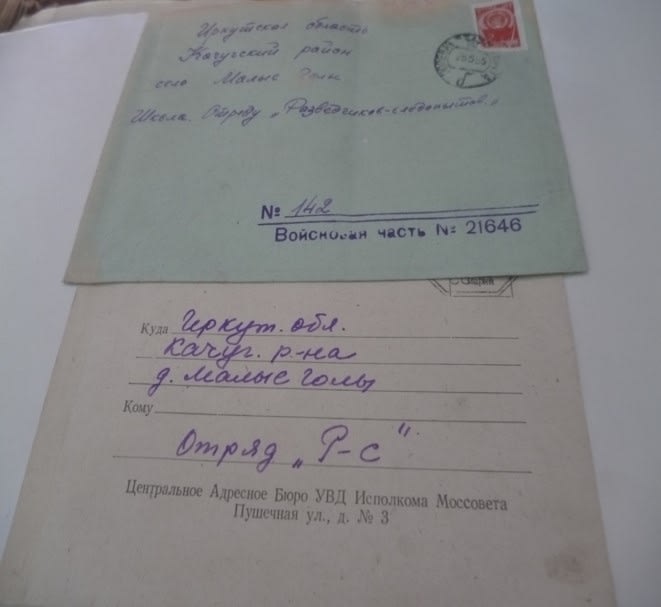 Иркутская область
Качугский район
село Малые Голы
Школа. Отряду „Разведчиков-следопытов."
№ 142
Войсковая часть № 21646
Куда Иркут. обл.
Качуг. р-на
д. Малые Голы
Кому
Отряд „Р-с"
Центральное Адресное Бюро УВД Исполкома Моссовета
Пушечная ул., д. № 3